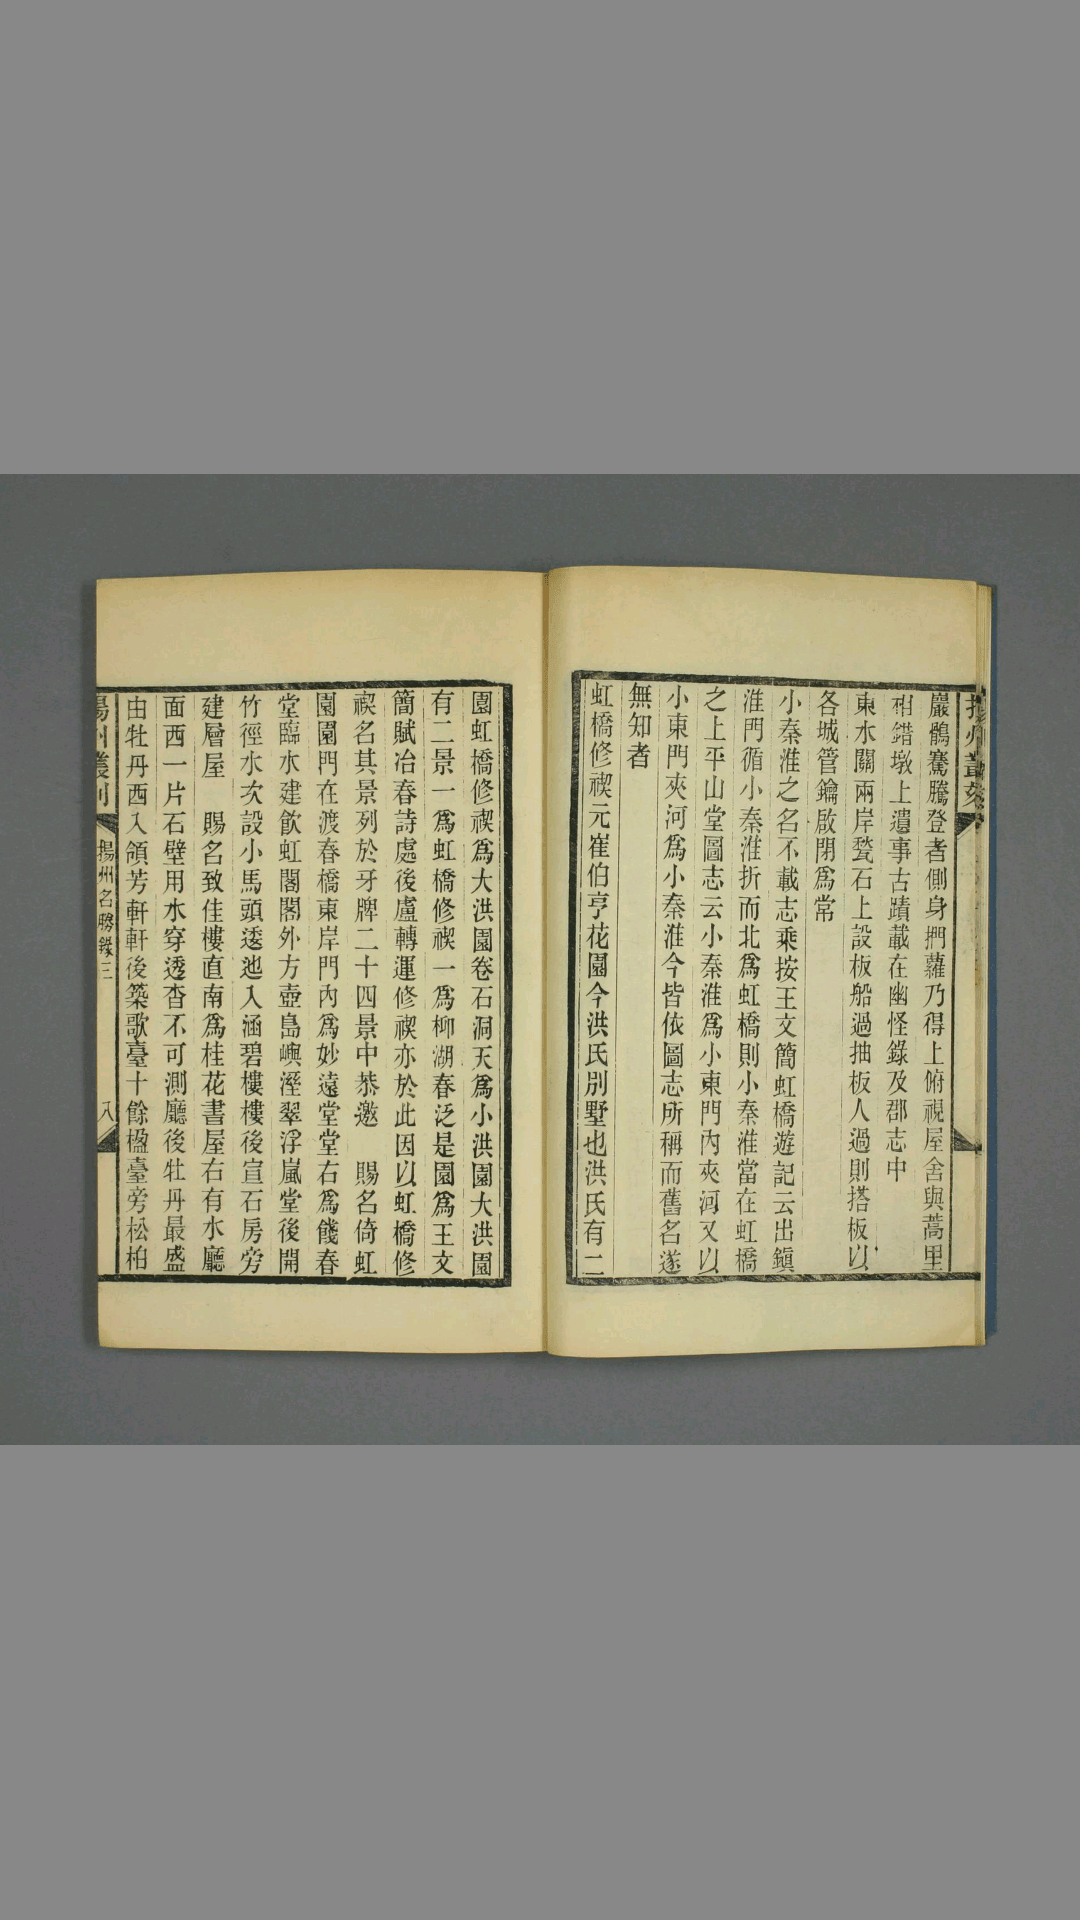 揚州叢刻
巖鶻騫騰登者側身捫蘿乃得上俯視屋舍與蒿里
相錯墩上遺事古蹟載在幽怪錄及郡志中
東水關兩岸甃石上設板船過抽板人過則搭板以
各城管鑰啟閉爲常
小秦淮之名不載志乘按王文簡虹橋遊記云出鎮
淮門循小秦淮折而北爲虹橋則小秦淮當在虹橋
之上平山堂圖志云小秦淮爲小東門內夾河又以
小東門夾河爲小秦淮今皆依圖志所稱而舊名遂
無知者
虹橋修禊元崔伯亨花園今洪氏別墅也洪氏有二
園虹橋修禊爲大洪園卷石洞天爲小洪園大洪園
有二景一爲虹橋修禊一爲柳湖春泛是園爲王文
簡賦冶春詩處後盧轉運修禊亦於此因以虹橋修
禊名其景列於牙牌二十四景中恭邀　賜名倚虹
園園門在渡春橋東岸門內爲妙遠堂堂右爲餞春
堂臨水建飲虹閣閣外方壺島嶼溼翠浮嵐堂後開
竹徑水次設小馬頭逶迆入涵碧樓樓後宣石房旁
建層屋　賜名致佳樓直南爲桂花書屋右有水廳
面西一片石壁用水穿透杳不可測廳後牡丹最盛
由牡丹西入領芳軒軒後築歌臺十餘楹臺旁松柏
揚州叢刻
揚州名勝錄三
八